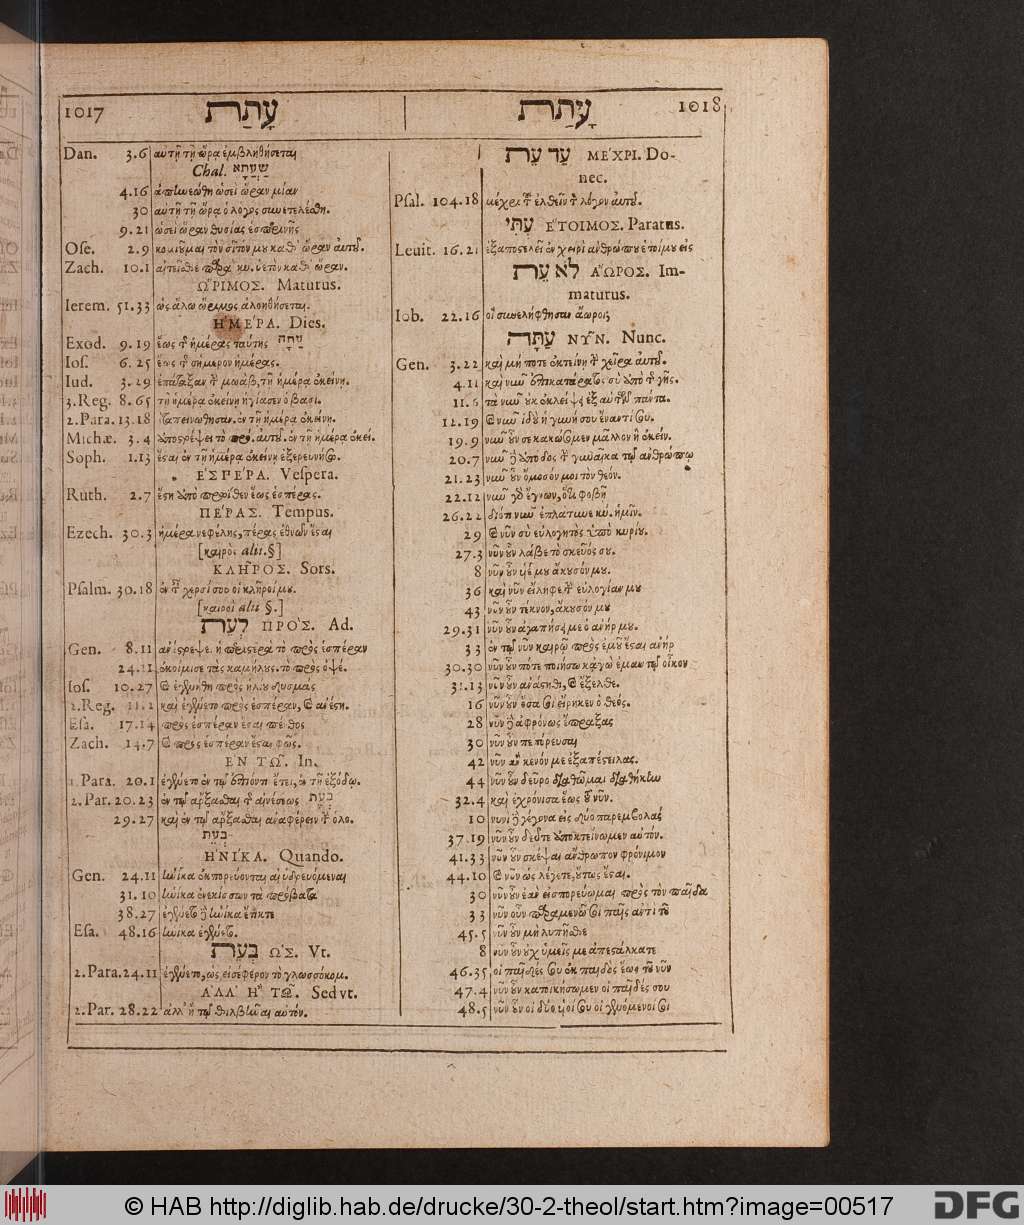 1017 עָתַת עָתַת 1018
Dan. 3.6 αὐτῇ τῇ ὥρᾳ ἐμβληθήσεται
Chal. שַׁעְתָּא
4.16 ὡσεὶ ὥραν μίαν
30 αὐτῇ τῇ ὥρᾳ ὁ λόγος συνετελέσθη.
9.21 ὡσεὶ ὥραν θυσίας ἑσπερινῆς
Ose. 2.9 κομιοῦμαι τὸν σῖτόν μου καθ' ὥραν αὐτοῦ.
Zach. 10.1 ὑετὸν καθ' ὥραν.
ὭΡΙΜΟΣ. Maturus.
Ierem. 51.33 ὡς ἅλων ὥριμος ἀλοηθήσεται.
ἩΜΈΡΑ. Dies.
Exod. 9.19 ἕως τῆς ἡμέρας ταύτης עַתָּה
Ios. 6.25 ἕως τῆς σήμερον ἡμέρας.
Iud. 3.29 ἐπάταξαν τὴν μωὰβ, τῇ ἡμέρᾳ ἐκείνῃ.
3.Reg. 8.65 τῇ ἡμέρᾳ ἐκείνῃ ἡγίασεν ὁ βασι.
2.Para. 13.18 ἐταπεινώθησαν ἐν τῇ ἡμέρᾳ ἐκείνῃ.
Michæ. 3.4 ἀποστρέψει τὸ πρό. αὐτοῦ ἐν τῇ ἡμέρᾳ ἐκεί.
Soph. 1.13 ἔσται ἐν τῇ ἡμέρᾳ ἐκείνῃ ἐξερευνήσω.
ἙΣΠΈΡΑ. Vespera.
Ruth. 2.7 ἔστη ἀπὸ πρωΐθεν ἕως ἑσπέρας.
ΠΈΡΑΣ. Tempus.
Ezech. 30.3 ἡμέρα νεφέλης, πέρας ἐθνῶν ἔσται
[καιρὸς alii.§]
ΚΛΗ͂ΡΟΣ. Sors.
Psalm. 30.18 ἐν ταῖς χερσί σου οἱ κλῆροί μου.
[καιροὶ alii §.]
לְעֵת ΠΡΌΣ. Ad.
Gen. 8.11 ἀνέστρεψε. ἡ περιστερὰ τὸ πρὸς ἑσπέραν
24.11 ἐκοίμισε τὰς καμήλους. τὸ πρὸς ὀψέ.
Ios. 10.27 καὶ ἐγενήθη πρὸς ἡλίου δυσμὰς
2.Reg. 11.2 καὶ ἐγένετο πρὸς ἑσπέραν, καὶ ἀνέστη.
Esa. 17.14 πρὸς ἑσπέραν ἔσται πένθος
Zach. 14.7 καὶ πρὸς ἑσπέραν ἔσται φῶς.
ἘΝ ΤΩ͂. In.
1.Para. 20.1 ἐγένετο ἐν τῷ ἐπιόντι ἔτει, ἐν τῇ ἐξόδῳ.
2.Par. 20.23 ἐν τῷ ἄρξασθαι τῆς αἰνέσεως בְּעֵת
29.27 καὶ ἐν τῷ ἄρξασθαι ἀναφέρειν τὴν ὁλο.
בְּעֵת
ἩΝΊΚΑ. Quando.
Gen. 24.11 ἡνίκα ἐκπορεύονται αἱ ὑδρευόμεναι
31.10 ἡνίκα ἐνεκίσσων τὰ πρόβατα
38.27 ἐγένετο δὲ ἡνίκα ἔτικτε
Esa. 48.16 ἡνίκα ἐγένετο.
בְּעֵת ὩΣ. Vt.
2.Para. 24.11 ἐγένετο, ὡς εἰσέφερον τὸ γλωσσόκομ.
ἈΛΛ' Ἢ ΤΩ͂. Sed vt.
2.Par. 28.22 ἀλλ' ἢ τῷ θλιβῆναι αὐτόν.
עַד עֵת ΜΈΧΡΙ. Do-
nec.
Psal. 104.18 μέχρι τοῦ ἐλθεῖν τὸν λόγον αὐτοῦ.
עִתִּי ἝΤΟΙΜΟΣ. Paratus.
Leuit. 16.21 ἐξαποστελεῖ ἐν χειρὶ ἀνθρώπου ἑτοίμου εἰς
לֹא עֵת ἌΩΡΟΣ. Im-
maturus.
Iob. 22.16 οἳ συνελήφθησαν ἄωροι;
עַתָּה ΝΥ͂Ν. Nunc.
Gen. 3.22 καὶ μή ποτε ἐκτείνῃ τὴν χεῖρα αὐτοῦ.
4.11 καὶ νῦν ἐπικατάρατος σὺ ἀπὸ τῆς γῆς.
11.6 τὰ νῦν οὐκ ἐκλείψει ἐξ αὐτῶν πάντα.
12.19 καὶ νῦν ἰδοὺ ἡ γυνή σου ἔναντί σου.
19.9 νῦν οὖν σε κακώσομεν μᾶλλον ἢ ἐκείν.
20.7 νῦν δὲ ἀπόδος τὴν γυναῖκα τῷ ἀνθρώπῳ
21.23 νῦν οὖν ὄμοσόν μοι τὸν θεόν.
22.12 νῦν γὰρ ἔγνων, ὅτι φοβῇ
26.22 διότι νῦν ἐπλάτυνε κύ. ἡμῖν.
29 καὶ νῦν σὺ εὐλογητὸς ὑπὸ κυρίου.
27.3 νῦν οὖν λάβε τὸ σκεῦός σου.
8 νῦν οὖν υἱέ μου ἄκουσόν μου.
36 καὶ νῦν εἴληφε τὴν εὐλογίαν μου
43 νῦν οὖν τέκνον, ἄκουσόν μου
29.31 νῦν οὖν ἀγαπήσει με ὁ ἀνήρ μου.
33 ἐν τῷ νῦν καιρῷ πρὸς ἐμοῦ ἔσται ἀνήρ
30.30 νῦν οὖν πότε ποιήσω κἀγὼ ἐμαυτῷ οἶκον
31.13 νῦν οὖν ἀνάστηθι, καὶ ἔξελθε.
16 νῦν οὖν ὅσα σοι εἴρηκεν ὁ θεός.
28 νῦν δὲ ἀφρόνως ἔπραξας
30 νῦν οὖν πεπόρευσαι
42 νῦν ἂν κενόν με ἐξαπέστειλας.
44 νῦν οὖν δεῦρο διαθῶμαι διαθήκην
32.4 καὶ ἐχρόνισα ἕως τοῦ νῦν.
10 νυνὶ δὲ γέγονα εἰς δύο παρεμβολάς
37.19 νῦν οὖν δεῦτε ἀποκτείνωμεν αὐτόν.
41.33 νῦν οὖν σκέψαι ἄνθρωπον φρόνιμον
44.10 καὶ νῦν ὡς λέγετε, οὕτως ἔσται.
30 νῦν οὖν ἐὰν εἰσπορεύωμαι πρὸς τὸν παῖδα
33 νῦν οὖν παραμενῶ σοι παῖς ἀντὶ τοῦ
45.5 νῦν οὖν μὴ λυπῆσθε
8 νῦν οὖν οὐχ ὑμεῖς με ἀπεστάλκατε
46.35 οἱ παῖδές σου ἐκ παιδὸς ἕως τοῦ νῦν
47.4 νῦν οὖν κατοικήσωμεν οἱ παῖδές σου
48.5 νῦν οὖν οἱ δύο υἱοί σου οἱ γενόμενοί σοι
© HAB http://diglib.hab.de/drucke/30-2-theol/start.htm?image=00517 DFG